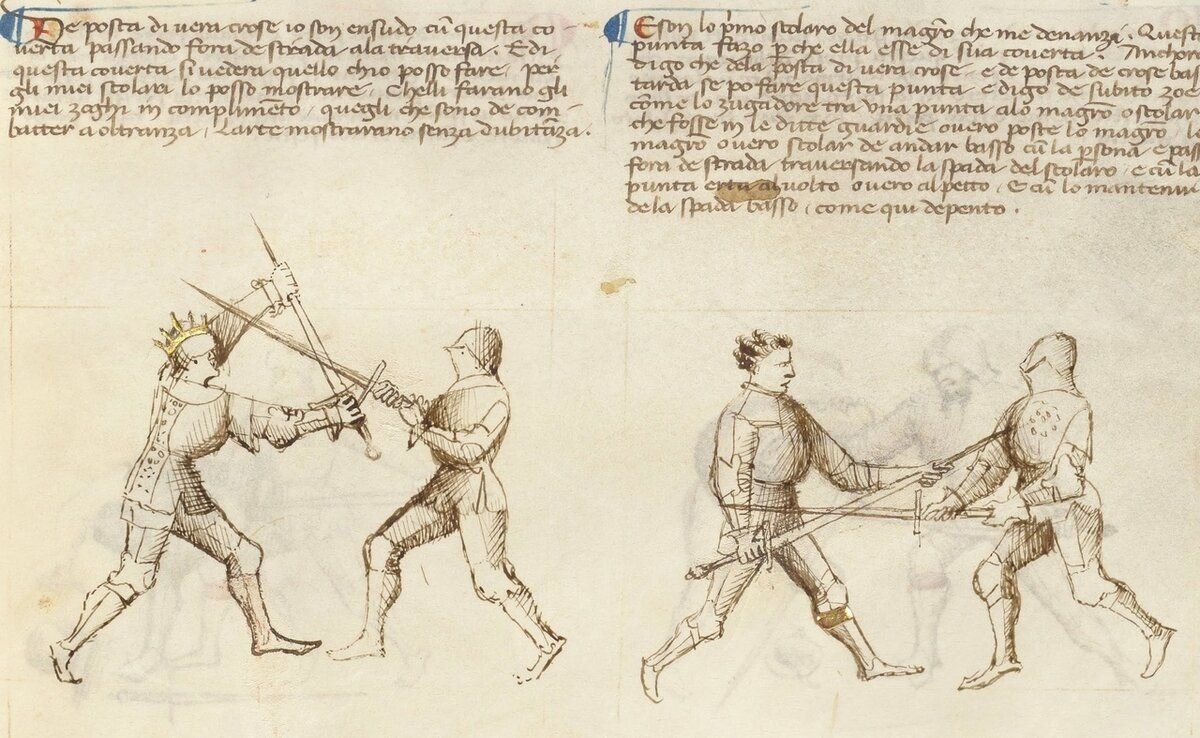 De posta di vera crose io son ensudo cũ questa co
verta passando fora de strada ala traversa. E di
questa coverta si vedera quello chio posso fare, per
gli miei scolari lo posso mostrare, Chelli farano gli
miei zoghi in complimẽto, quegli che sono de com̃
batter a oltranza, Larte mostrarano senza dubitãza.
E son lo p̃mo scolaro del magr̃o che me denanzi. Questa
punta fazo p che ella esse di sua coverta. Anchora
digo che dela posta di vera crose e de posta de crose bas
tarda se po fare questa punta e digo de subito zoe
come lo zugadore tra una punta alo magr̃o o scolar
che fosse in le ditte guardie overo poste lo magro, lo
magr̃o overo scolar de andar basso cũ la p̃sona e pass
fora de strada traversando la spada del scolaro, e cũ la
punta erta al volto overo al petto, E cũ lo mantenir
de la spada basso, come qui depento.